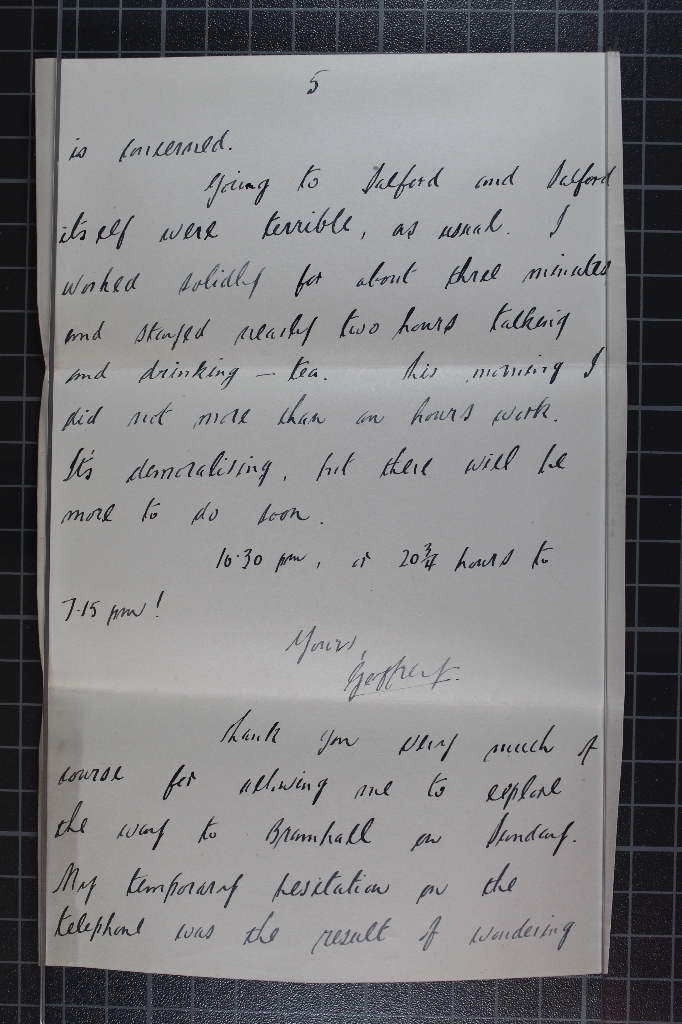 5
is concerned.
Going to Salford and Salford
itself were terrible, as usual. I
worked solidly for about three minutes
and stayed nearly two hours talking
and drinking - tea. This morning I
did not more than an hours work.
It's demoralising, but there will be
more to do soon.
10.30 pm, or 20 3/4 hours to
7.15 pm!
Yours,
Geoffrey.
Thank you very much of
course for allowing me to explore
the way to Bramhall on Sunday.
My temporary hesitation on the
telephone was the result of wondering